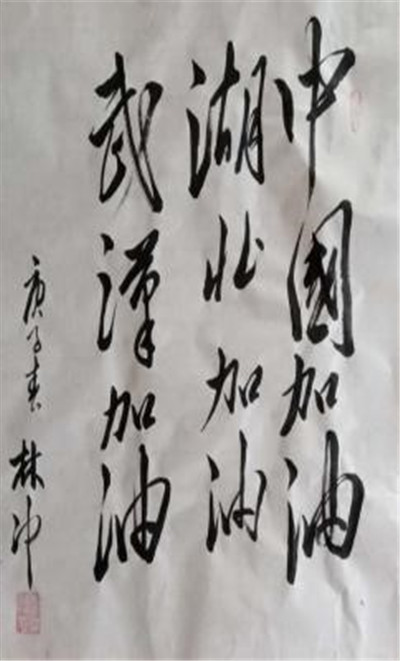 中國加油
湖北加油
武漢加油
庚子春 林冲